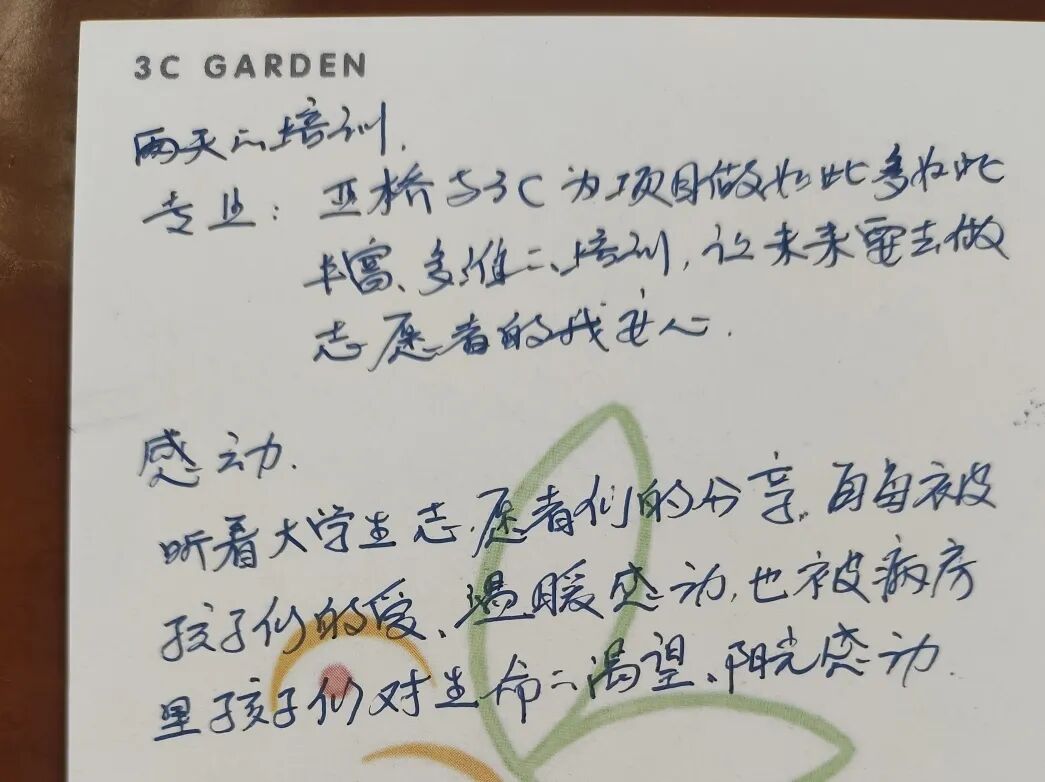 3C GARDEN
两天的培训.
专业: 亚桥与3C为项目做如此多如此
丰富、多维的培训, 让未来要去做
志愿者的我安心.
感动.
听着大学生志愿者们的分享, 每每被
孩子们的爱、温暖感动, 也被病房
里孩子们对生命的渴望、阳光感动.